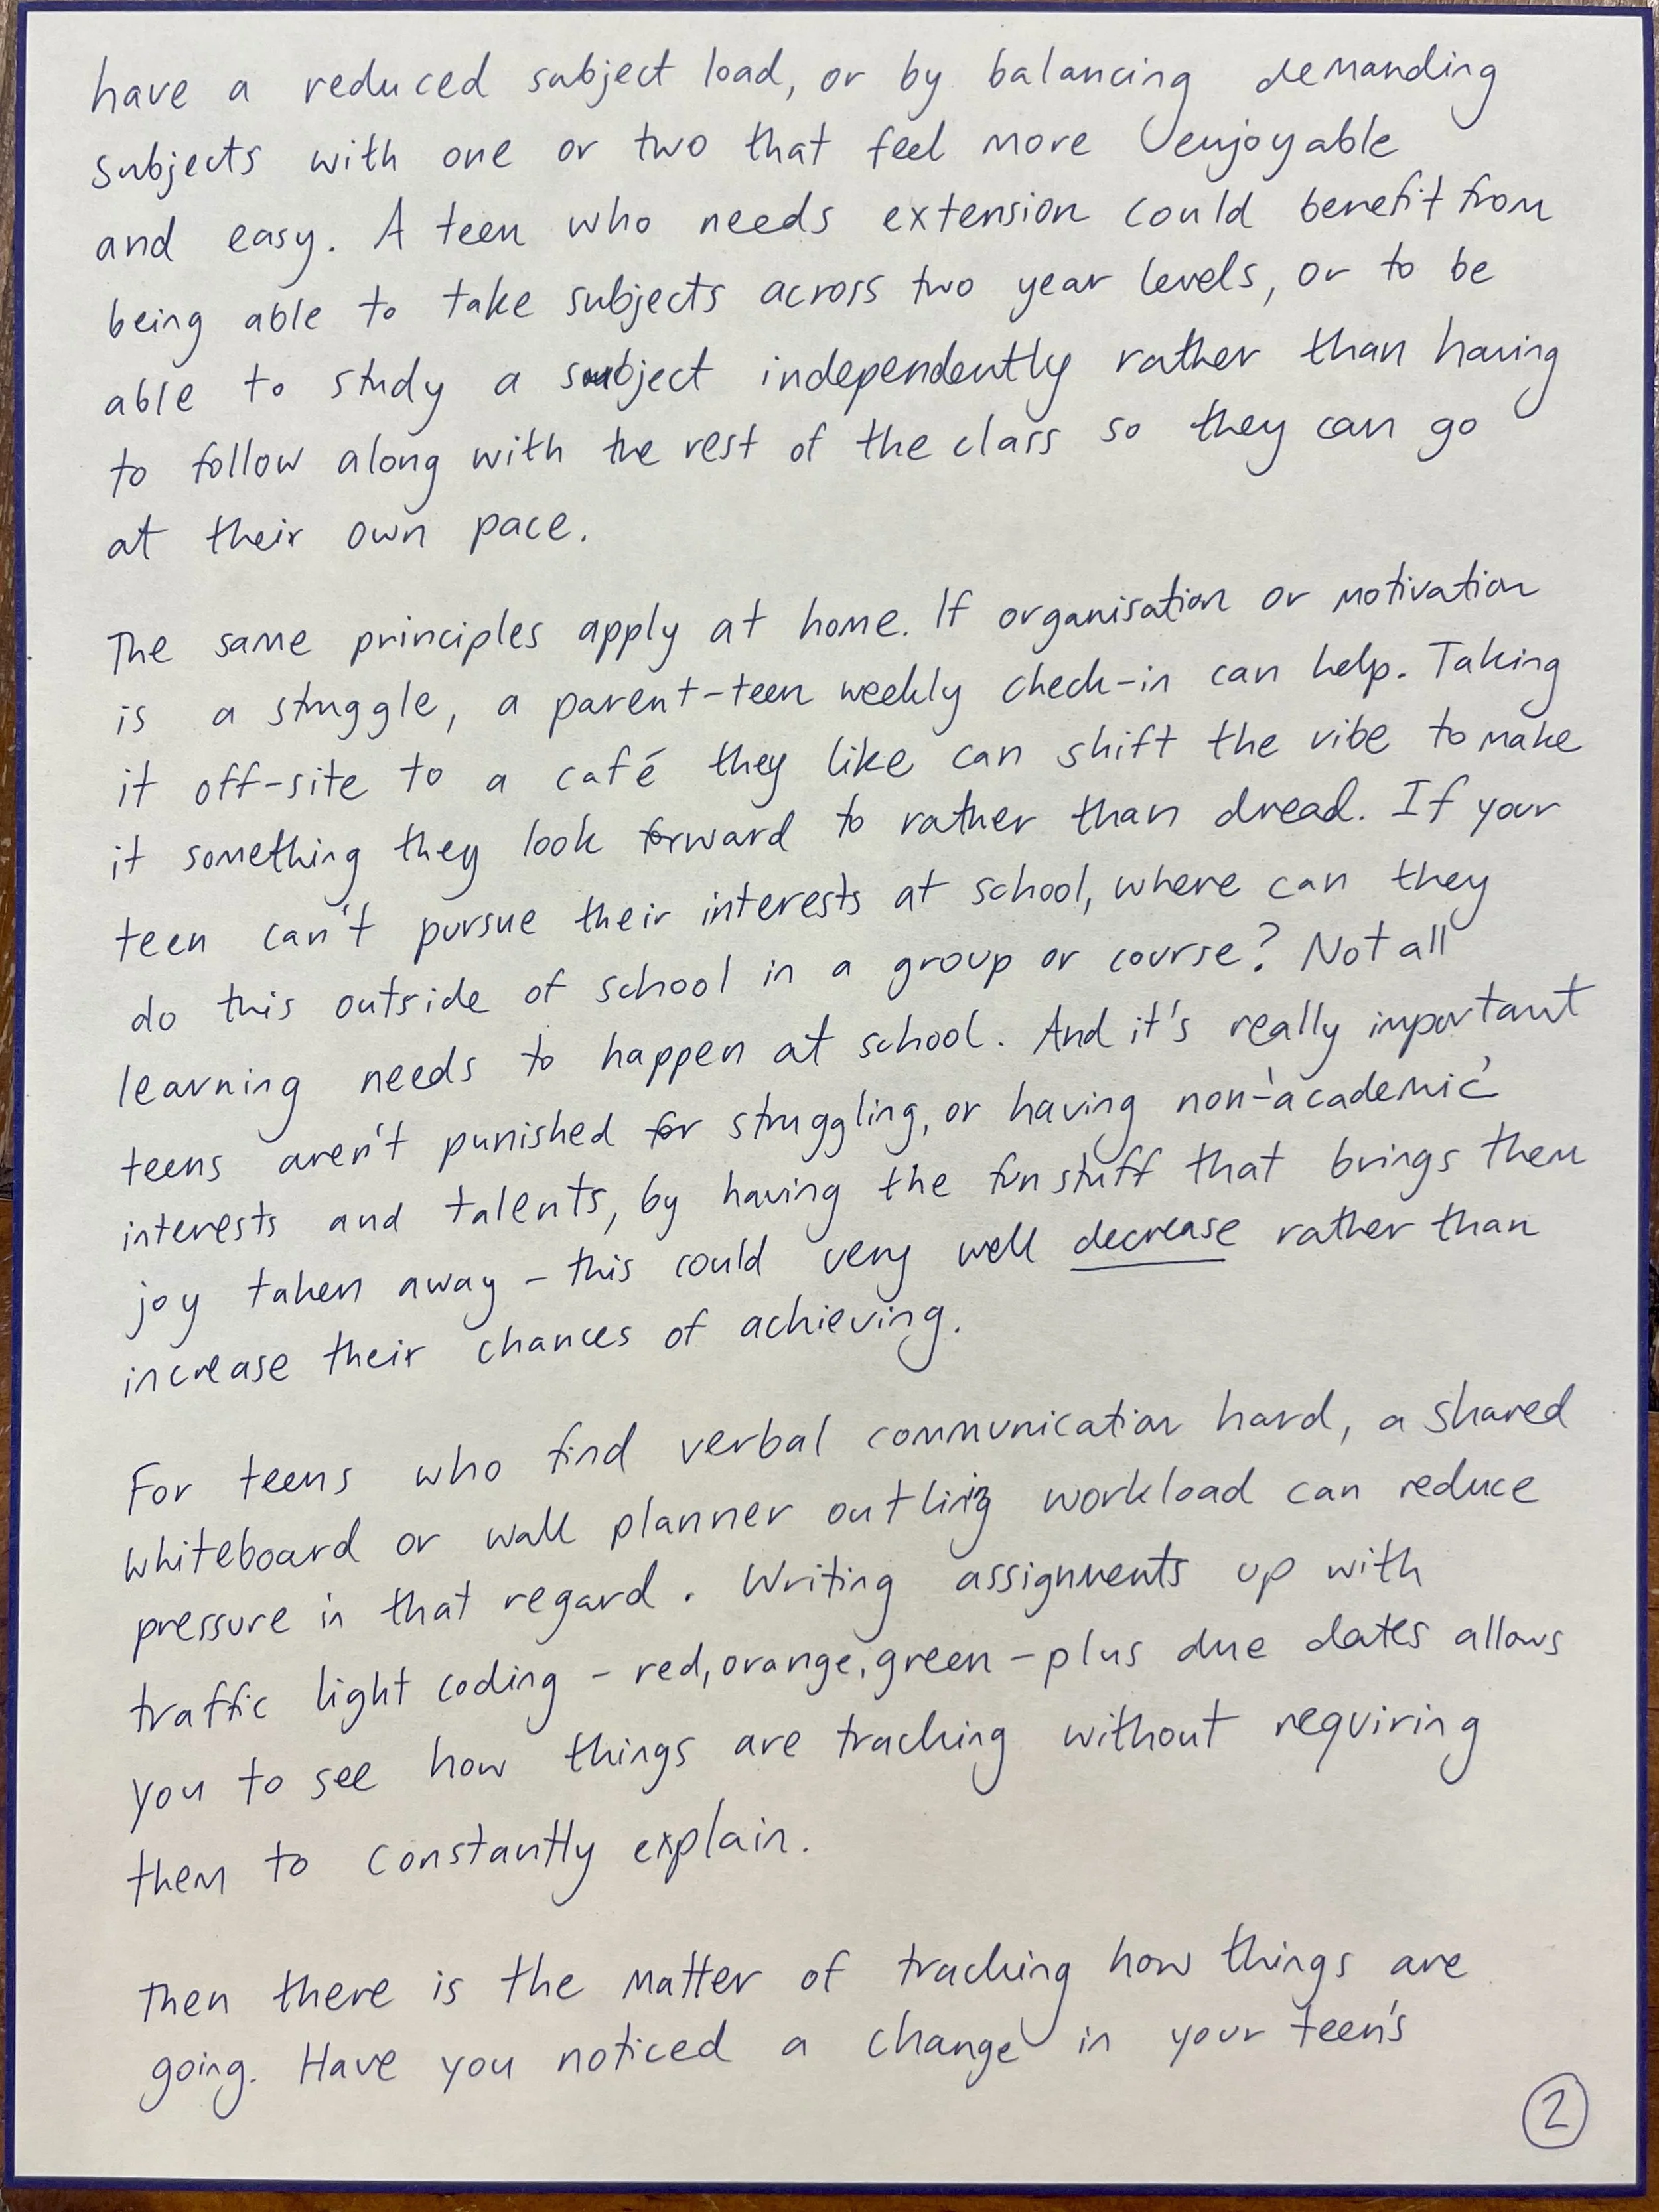 have a reduced subject load, or by balancing demanding
subjects with one or two that feel more enjoyable
and easy. A teen who needs extension could benefit from
being able to take subjects across two year levels, or to be
able to study a subject independently rather than having
to follow along with the rest of the class so they can go
at their own pace.
The same principles apply at home. If organisation or motivation
is a struggle, a parent-teen weekly check-in can help. Taking
it off-site to a café they like can shift the vibe to make
it something they look forward to rather than dread. If your
teen can't pursue their interests at school, where can they
do this outside of school in a group or course? Not all
learning needs to happen at school. And it's really important
teens aren't punished for struggling, or having non-'academic'
interests and talents, by having the fun stuff that brings them
joy taken away - this could very well decrease rather than
increase their chances of achieving.
For teens who find verbal communication hard, a shared
whiteboard or wall planner outlining workload can reduce
pressure in that regard. Writing assignments up with
traffic light coding - red, orange, green - plus due dates allows
you to see how things are tracking without requiring
them to constantly explain.
Then there is the matter of tracking how things are
going. Have you noticed a change in your teen's
2